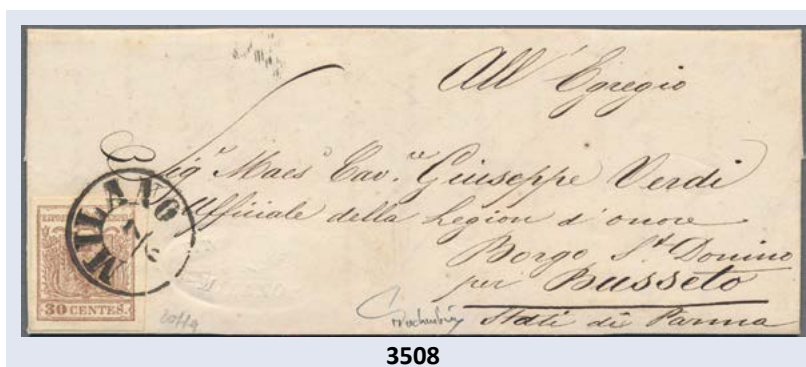 All' Egregio
Sig.r Maes.o Cav.re Giuseppe Verdi
Uffiziale della Legion d'onore
Borgo S.t Donino
per Busseto
Stati di Parma
MILANO
30 CENTES.
3508